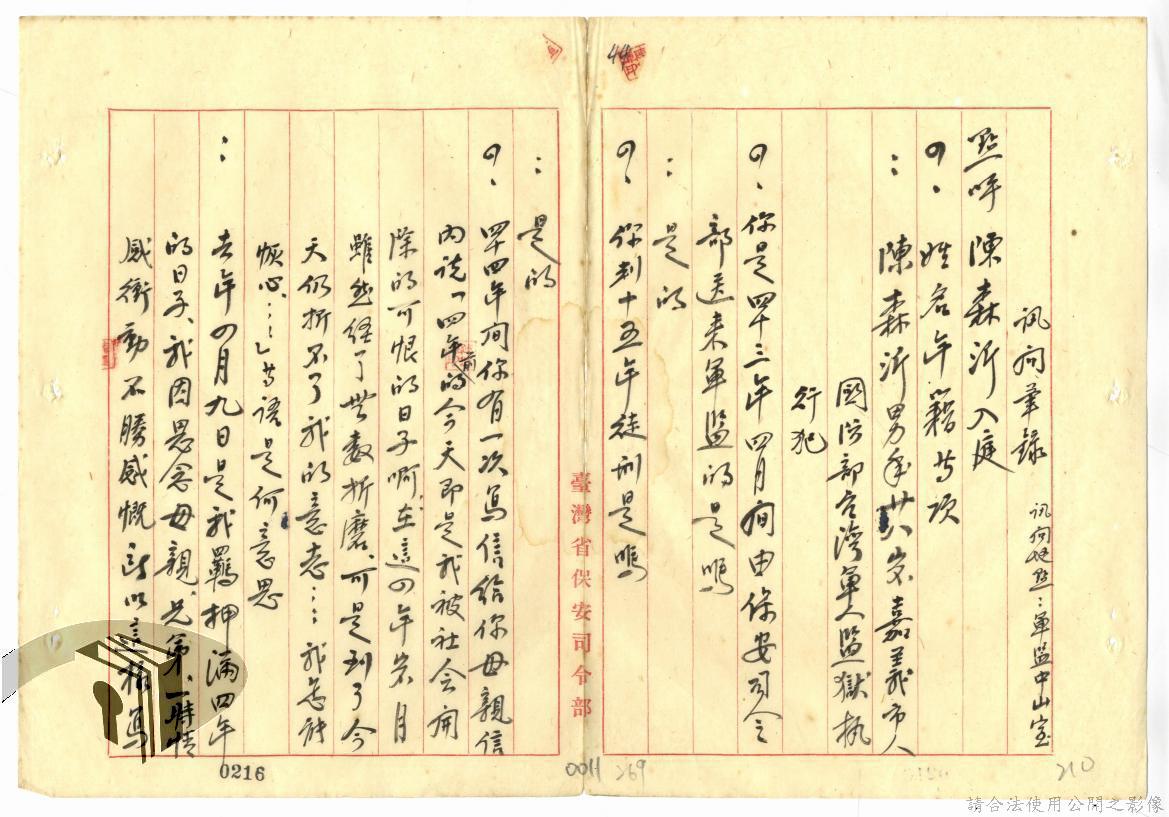 訊問筆錄 訊問地點:軍監中山室
點呼陳森沂入庭
問、姓名年籍等項
:陳森沂男年卅八岁嘉義市人
國防部台灣軍人監獄執
行犯
問、你是四十三年四月間由保安司令
部送来軍監的是嗎
:是的
問、你判十五年徒刑是嗎
臺灣省保安司令部
:是的
問、四十四年間你有一次寫信給你母親信
內說「四年前的今天即是我被社会開
除的可恨的日子啊,在這四年岁月
雖然経了無数折磨、可是到了今
天仍折不了我的意志…我怎能
恢心…」等語是何意思
:去年四月九日是我羈押滿四年
的日子、我因思念母親、兄弟、一時情
感衝動不勝感慨所以這樣寫
44
0216
0011 269
210
請合法使用公開之影像